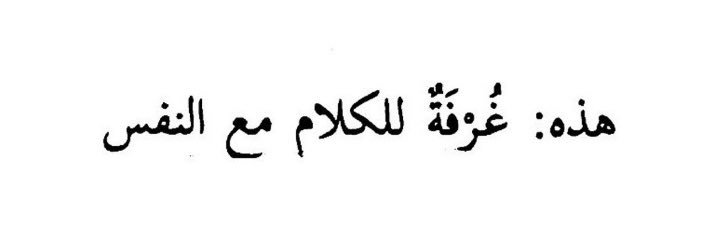 هذه: غُرْفَةٌ للكلام مع النفس